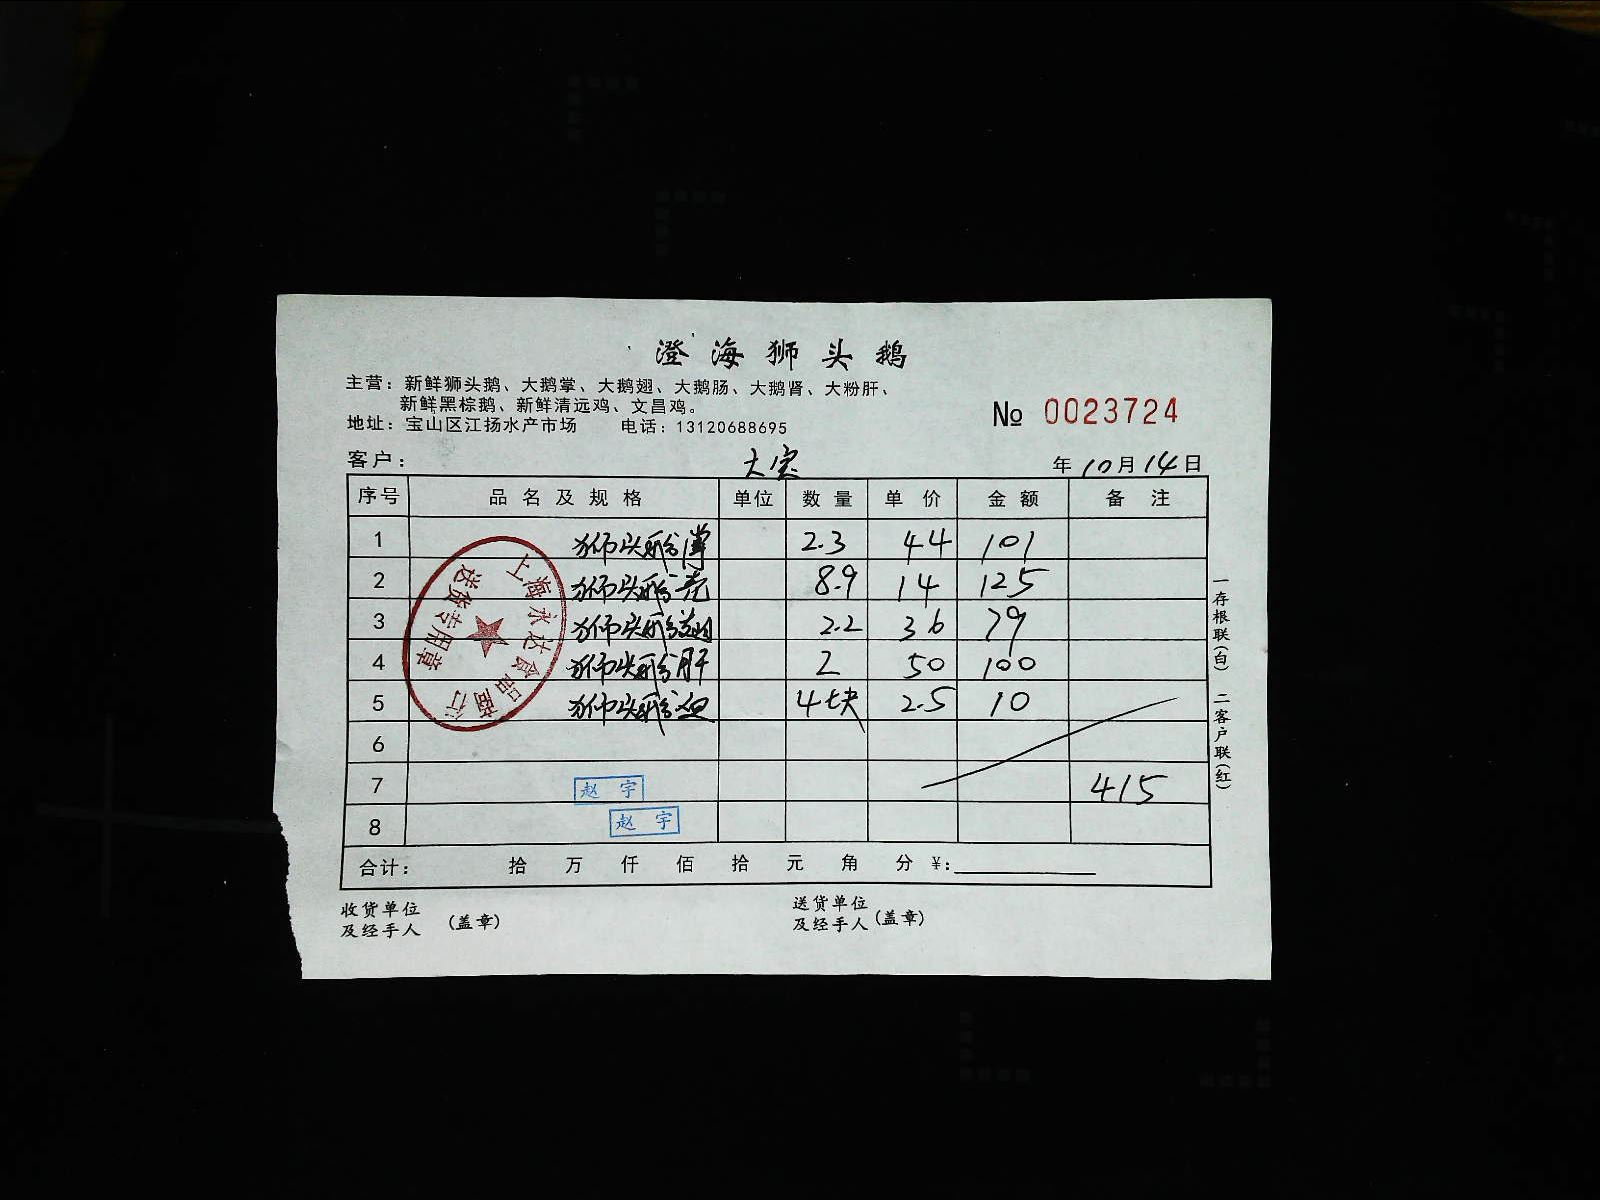 澄海狮头鹅
主营：新鲜狮头鹅、大鹅掌、大鹅翅、大鹅肠、大鹅肾、大粉肝、
新鲜黑棕鹅、新鲜清远鸡、文昌鸡。
地址：宝山区江扬水产市场 电话：13120688695
№ 0023724
客户： 大宝 年 10 月 14 日
序号 品名及规格 单位 数量 单价 金额 备注
1 狮头鹅掌 2.3 44 101
2 狮头鹅壳 8.9 14 125
3 狮头鹅翅 2.2 36 79
4 狮头鹅肝 2 50 100
5 狮头鹅 4块 2.5 10
6
7 赵宇 415
8 赵宇
合计： 拾 万 仟 佰 拾 元 角 分 ¥：
收货单位
及经手人 (盖章)
送货单位
及经手人 (盖章)
一存根联(白) 二客户联(红)
上海永达食品商行
送货专用章